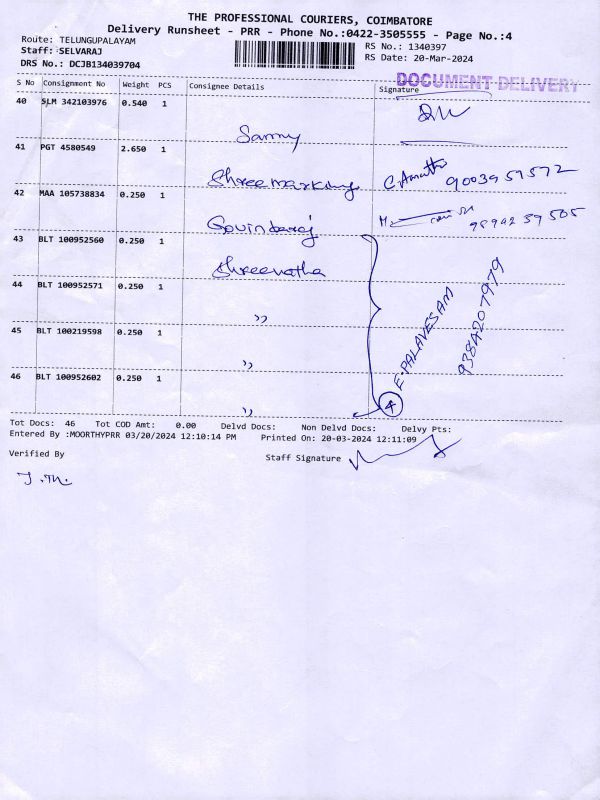 THE PROFESSIONAL COURIERS, COIMBATORE
Delivery Runsheet - PRR - Phone No.:0422-3505555 - Page No.:4
Route: TELUNGUPALAYAM
RS No.: 1340397
Staff: SELVARAJ
RS Date: 20-Mar-2024
DRS No.: DCJB134039704
DOCUMENT DELIVERY
S No Consignment No Weight PCS Consignee Details Signature
40 SLM 342103976 0.540 1
Sammy
41 PGT 4580549 2.650 1
Shreemarking 9003957572
42 MAA 105738834 0.250 1
Govindaraj 9894239505
43 BLT 100952560 0.250 1
Shreevatha
44 BLT 100952571 0.250 1
"
E. PALAVESAM
9384207979
45 BLT 100219598 0.250 1
"
46 BLT 100952602 0.250 1
"
4
Tot Docs: 46 Tot COD Amt: 0.00 Delvd Docs: Non Delvd Docs: Delvy Pts:
Entered By :MOORTHYPRR 03/20/2024 12:10:14 PM Printed On: 20-03-2024 12:11:09
Verified By Staff Signature